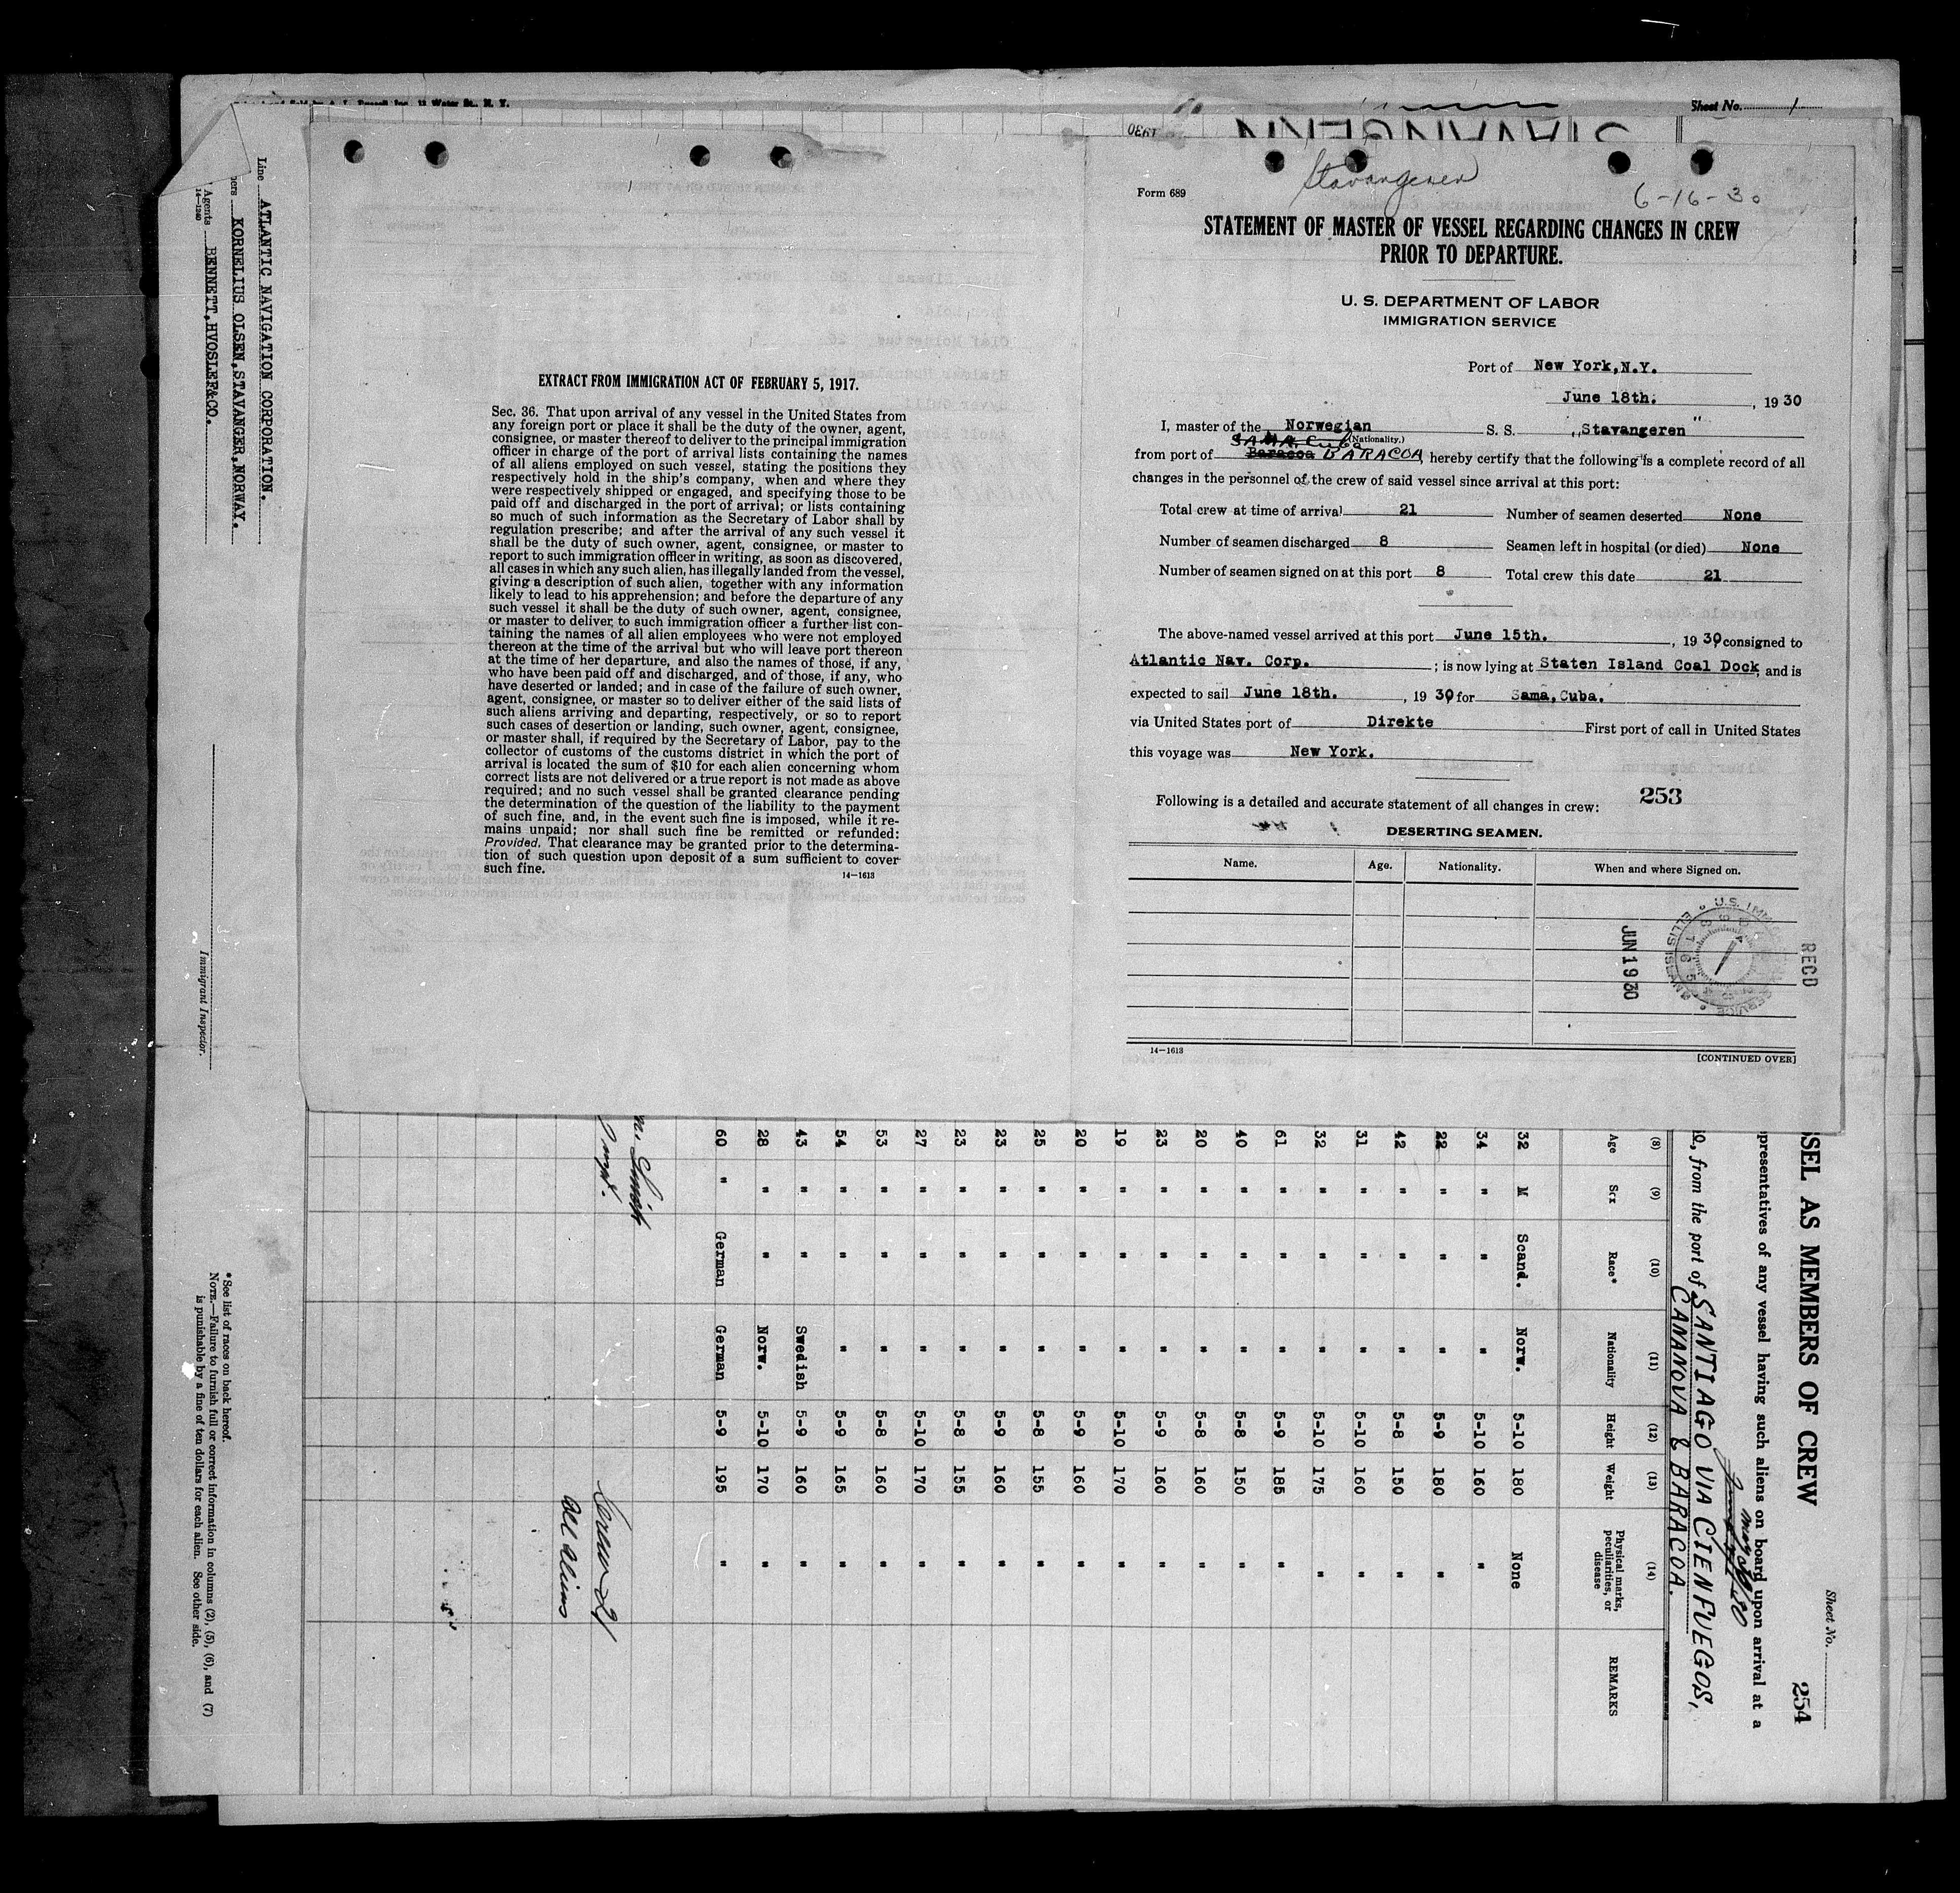 Sheet No. 1
STAVANGEREN
Stavangeren
6-16-30
Form 689
STATEMENT OF MASTER OF VESSEL REGARDING CHANGES IN CREW
PRIOR TO DEPARTURE.
U. S. DEPARTMENT OF LABOR
IMMIGRATION SERVICE
Port of New York, N.Y.
June 18th. , 1930
I, master of the Norwegian S. S. "Stavangeren"
(Nationality.)
SAMA. Cuba
from port of Baracoa BARACOA, hereby certify that the following is a complete record of all
changes in the personnel of the crew of said vessel since arrival at this port:
Total crew at time of arrival 21 Number of seamen deserted None
Number of seamen discharged 8 Seamen left in hospital (or died) None
Number of seamen signed on at this port 8 Total crew this date 21
The above-named vessel arrived at this port June 15th. , 1930, consigned to
Atlantic Nav. Corp. ; is now lying at Staten Island Coal Dock, and is
expected to sail June 18th. , 1930, for Sama, Cuba.
via United States port of Direkte First port of call in United States
this voyage was New York.
Following is a detailed and accurate statement of all changes in crew: 253
DESERTING SEAMEN.
Name. Age. Nationality. When and where Signed on.
RECD
JUN 19 30
14—1613
[CONTINUED OVER]
EXTRACT FROM IMMIGRATION ACT OF FEBRUARY 5, 1917.
Sec. 36. That upon arrival of any vessel in the United States from
any foreign port or place it shall be the duty of the owner, agent,
consignee, or master thereof to deliver to the principal immigration
officer in charge of the port of arrival lists containing the names
of all aliens employed on such vessel, stating the positions they
respectively hold in the ship's company, when and where they
were respectively shipped or engaged, and specifying those to be
paid off and discharged in the port of arrival; or lists containing
so much of such information as the Secretary of Labor shall by
regulation prescribe; and after the arrival of any such vessel it
shall be the duty of such owner, agent, consignee, or master to
report to such immigration officer in writing, as soon as discovered,
all cases in which any such alien, has illegally landed from the vessel,
giving a description of such alien, together with any information
likely to lead to his apprehension; and before the departure of any
such vessel it shall be the duty of such owner, agent, consignee,
or master to deliver to such immigration officer a further list con-
taining the names of all alien employees who were not employed
thereon at the time of the arrival but who will leave port thereon
at the time of her departure, and also the names of those, if any,
who have been paid off and discharged, and of those, if any, who
have deserted or landed; and in case of the failure of such owner,
agent, consignee, or master so to deliver either of the said lists of
such aliens arriving and departing, respectively, or so to report
such cases of desertion or landing, such owner, agent, consignee,
or master shall, if required by the Secretary of Labor, pay to the
collector of customs of the customs district in which the port of
arrival is located the sum of $10 for each alien concerning whom
correct lists are not delivered or a true report is not made as above
required; and no such vessel shall be granted clearance pending
the determination of the question of the liability to the payment
of such fine, and, in the event such fine is imposed, while it re-
mains unpaid; nor shall such fine be remitted or refunded:
Provided, That clearance may be granted prior to the determina-
tion of such question upon deposit of a sum sufficient to cover
such fine.
14—1613
Sheet No.
254
SSEL AS MEMBERS OF CREW
presentatives of any vessel having such aliens on board upon arrival at a
from the port of SANTIAGO VIA CIENFUEGOS,
CANANOVA & BARACOA.
(8) (9) (10) (11) (12) (13) (14)
Age Sex Race* Nationality Height Weight Physical marks, peculiarities, or disease REMARKS
32 M Scand. Norw. 5-10 180 None
34 " " " 5-10 160 "
22 " " " 5-9 180 "
42 " " " 5-8 150 "
31 " " " 5-10 160 "
32 " " " 5-10 175 "
61 " " " 5-9 185 "
40 " " " 5-8 150 "
20 " " " 5-8 160 "
23 " " " 5-9 160 "
19 " " " 5-10 170 "
20 " " " 5-9 160 "
25 " " " 5-8 155 "
23 " " " 5-9 160 "
23 " " " 5-8 155 "
27 " " " 5-10 170 "
53 " " " 5-8 160 "
54 " " " 5-9 165 "
43 " " Swedish 5-9 160 "
28 " " Norw. 5-10 170 "
60 " German German 5-9 195 "
Crew 21
all aliens
Line ATLANTIC NAVIGATION CORPORATION.
ners KORNELIUS OLSEN, STAVANGER, NORWAY.
Agents BENNETT, HVOSLEF&CO.
14—1240
Immigrant Inspector.
*See list of races on back hereof.
NOTE.—Failure to furnish full or correct information in columns (2), (5), (6), and (7)
is punishable by a fine of ten dollars for each alien. See other side.